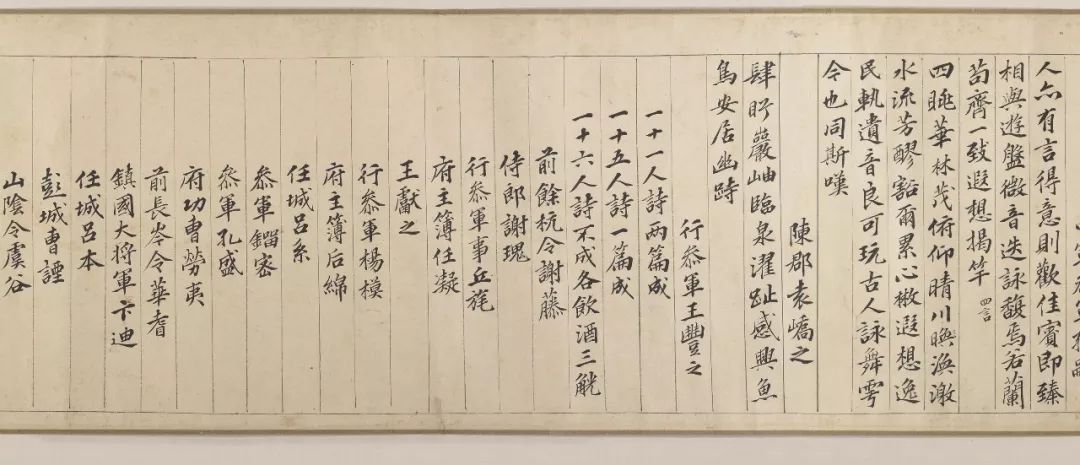 人亦有言得意則歡佳賓即臻
相與遊盤微音迭詠馥焉若蘭
苟齊一致遐想揭竿 四言
四眺華林茂俯仰晴川渙激
水流芳醪豁爾累心散遐想逸
民軌遺音良可玩古人詠舞雩
今也同斯嘆
陳郡袁嶠之
肆眄巖岫臨泉濯趾感興魚
鳥安居幽跱
行叅軍王豐之
一十一人詩两篇成
一十五人詩一篇成
一十六人詩不成各飲酒三觥
前餘杭令謝藤
侍郎謝瑰
行叅軍事丘旄
府主簿任凝
王獻之
行叅軍楊模
府主簿后綿
任城呂系
叅軍劉密
叅軍孔盛
府功曹勞夷
前長岑令華耆
鎮國大将軍卞迪
任城呂本
彭城曹諲
山陰令虞谷